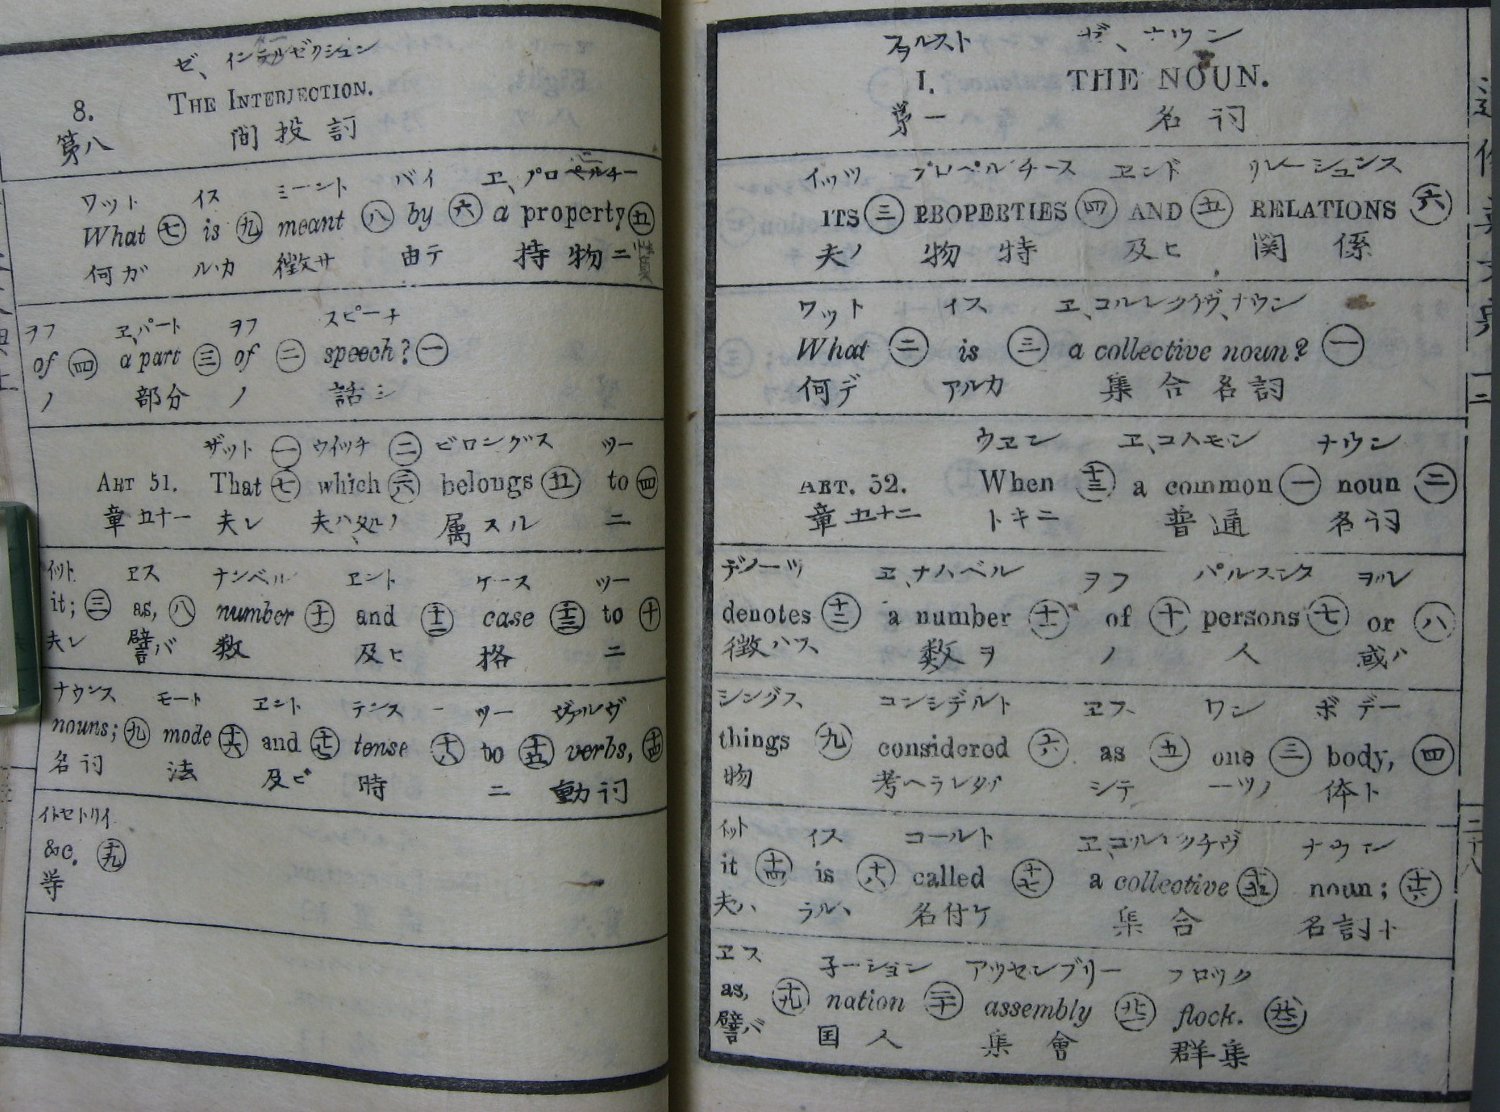 ゼ、インテルゼクシュン
8. THE INTERJECTION.
第八 間投詞
ワット イス ミーント バイ ヱ、プロペルチー
What 七 is 九 meant 八 by 六 a property 五
何ガ ルカ 徴サ 由テ 持物ニ
ヲフ ヱ、パート ヲフ スピーチ
of 四 a part 三 of 二 speech? 一
ノ 部分 ノ 話シ
ザット 一 ウイッチ 二 ビロングス ツー
ART 51. That 七 which 六 belongs 五 to 四
章五十一 夫レ 夫ハ処ノ 属スル ニ
イット ヱス ナンベル ヱント ケース ツー
it; 三 as, 八 number 十一 and 十二 case 十三 to 十
夫レ 譬バ 数 及ヒ 格 ニ
ナウンス モート ヱント テンス ツー ヴァルヴ
nouns; 九 mode 十六 and 十七 tense 十八 to 十五 verbs, 十四
名詞 法 及ビ 時 ニ 動詞
イトセトリイ
&c. 十九
等
ファルスト ゼ、ナウン
I. THE NOUN.
第一 名詞
イッツ プロペルチース ヱンド リレーシュンス
ITS 三 PROPERTIES 四 AND 五 RELATIONS 六
夫ノ 物特 及ヒ 関係
ワット イス ヱ、コルレクチヴ、ナウン
What 二 is 三 a collective noun? 一
何デ アルカ 集合名詞
ウヱン ヱ、コムモン ナウン
ART. 52. When 十三 a common 一 noun 二
章五十二 トキニ 普通 名詞
デノーツ ヱ、ナムベル ヲフ パルスンス ヲル
denotes 十二 a number 十一 of 十 persons 七 or 八
徴ハス 数ヲ ノ 人 或ハ
シングス コンシデルト ヱス ワン ボデー
things 九 considered 六 as 五 one 三 body, 四
物 考ヘラレタル シテ 一ツノ 体ト
イット イス コールト ヱ、コルレクチヴ ナウン
it 十四 is 十八 called 十七 a collective 十五 noun; 十六
夫ハ ラル、 名付ケ 集合 名詞ト
ヱス 子ーション アッセンブリー フロック
as, 十九 nation 二十 assembly 廿一 flock. 廿二
譬バ 国人 集會 群集